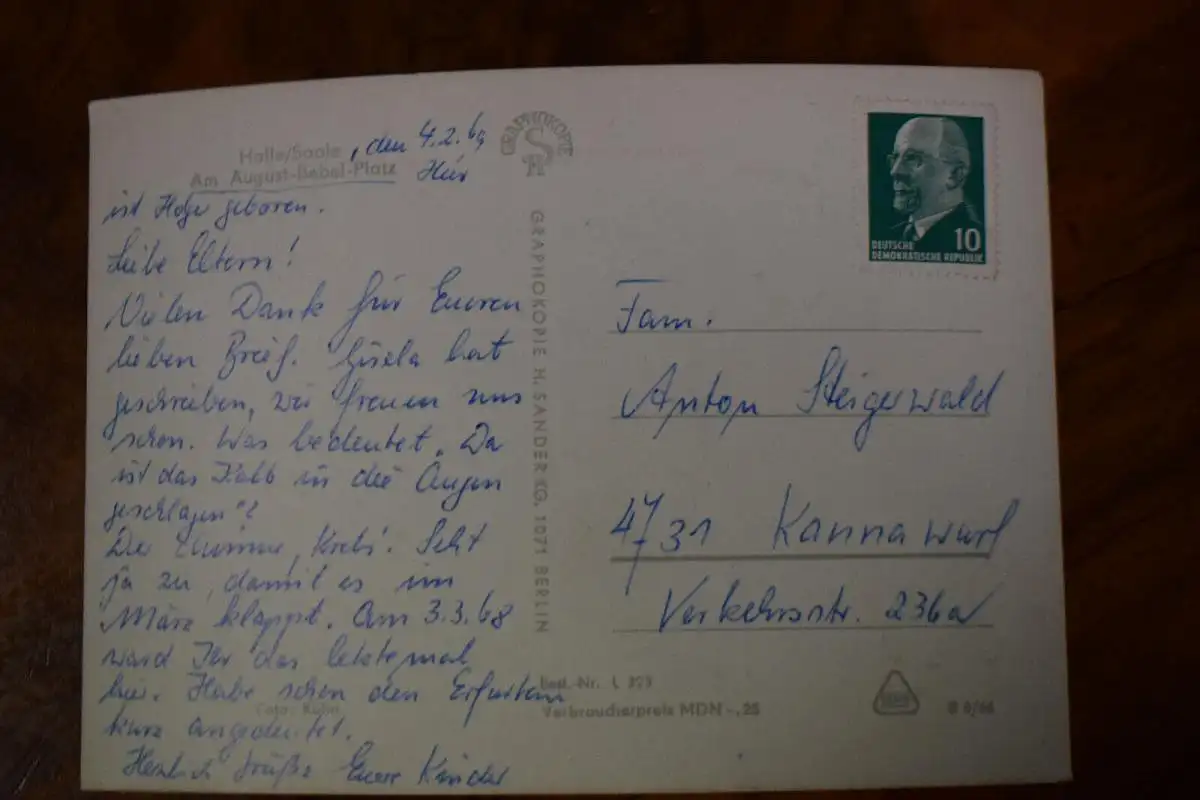 Halle/Saale, den 4.2.69
Am August-Bebel-Platz Hier
ist Holger geboren.
Liebe Eltern!
Vielen Dank für Eueren
lieben Brief. Gisela hat
geschrieben, wir freuen uns
schon. Was bedeutet „Da
ist das Kalb in die Augen
geschlagen"?
Der Krebs'. Seht
ja zu, damit es im
März klappt. Am 3.3.68
ward Ihr das letztemal
hier. Habe schon den Erfurtern
kurz angedeutet.
Herzlich Grüße Euere Kinder
Foto: Kühn
GRAPHOKOPIE
GRAPHOKOPIE H. SANDER KG, 1071 BERLIN
DEUTSCHE
DEMOKRATISCHE REPUBLIK
10
Fam.
Anton Steigerwald
4731 Kannawurf
Verkehrsstr. 236a
Best.-Nr. L 323
Verbraucherpreis MDN -,25